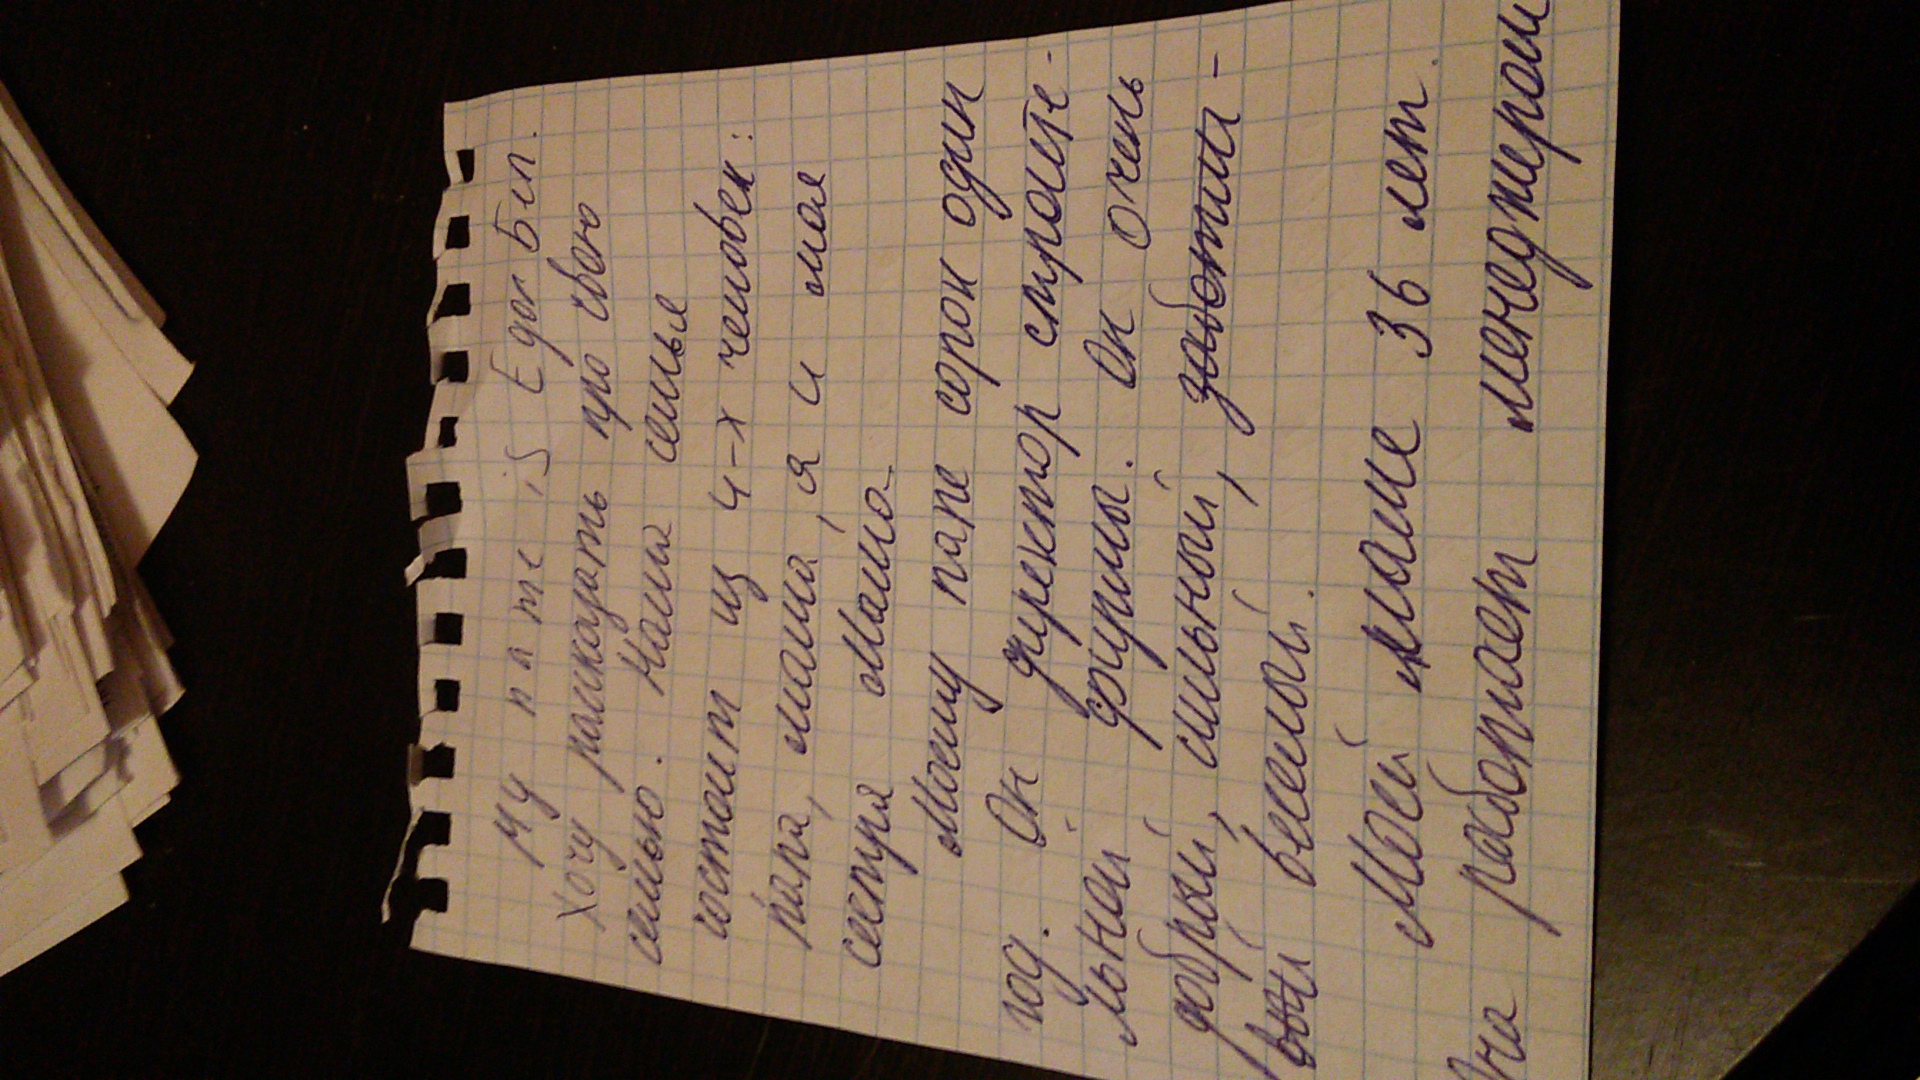 My name is Egor Бел.
Хочу рассказать про свою
семью. Наша семья
состоит из 4-х человек:
папа, мама, я и моя
сестра Маша.
Моему папе сорок один
год. Он директор строите-
льной фирмы. Он очень
добрый, сильный, заботли-
вый весёлый.
Моей маме 36 лет.
Она работает менеджером